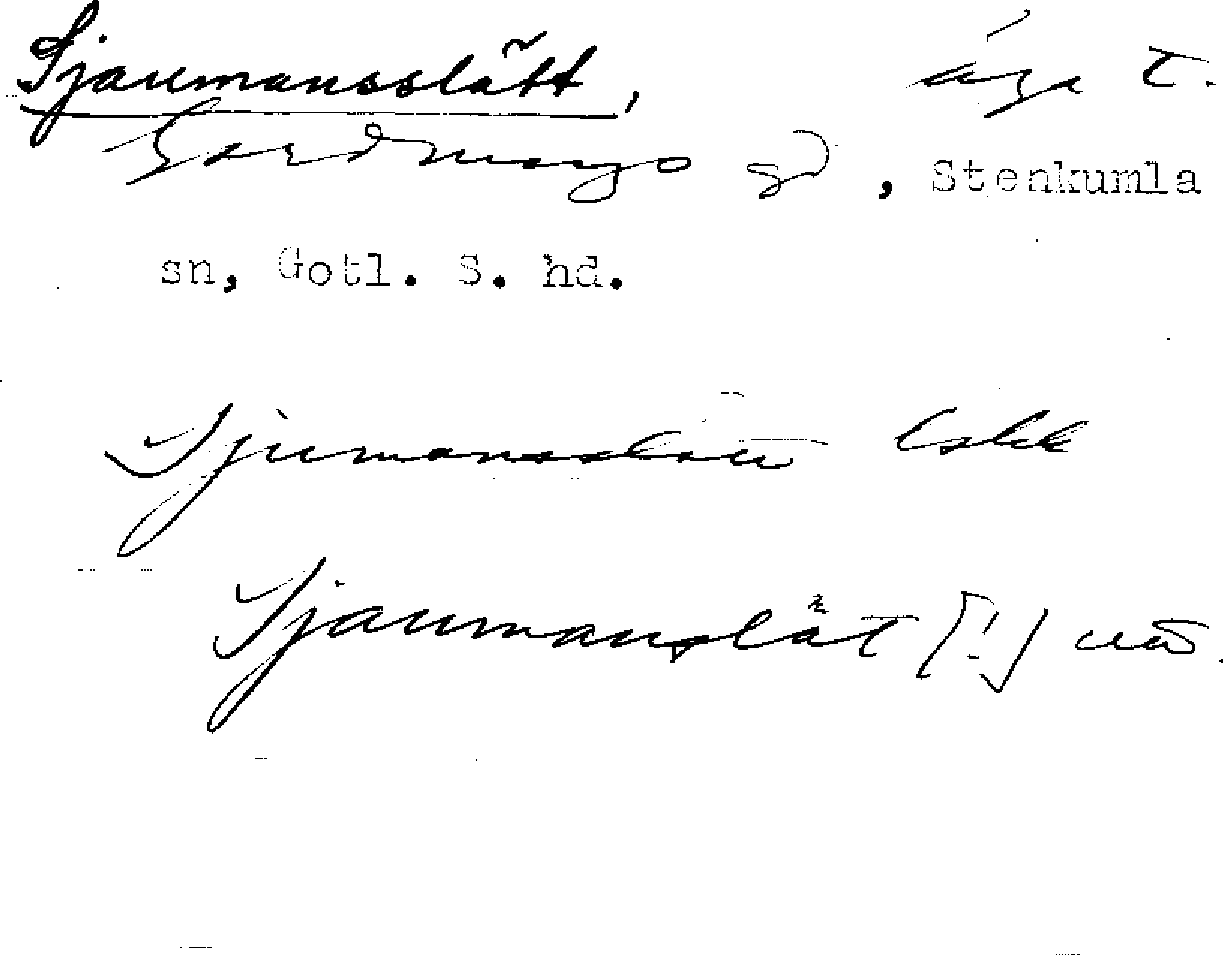 Sjaumansslått, äga t.
Gardrungs gd, Stenkumla
sn, Gotl. S. hd.
Sjumansslått Lskk
Sjaumanslät [!] uo.